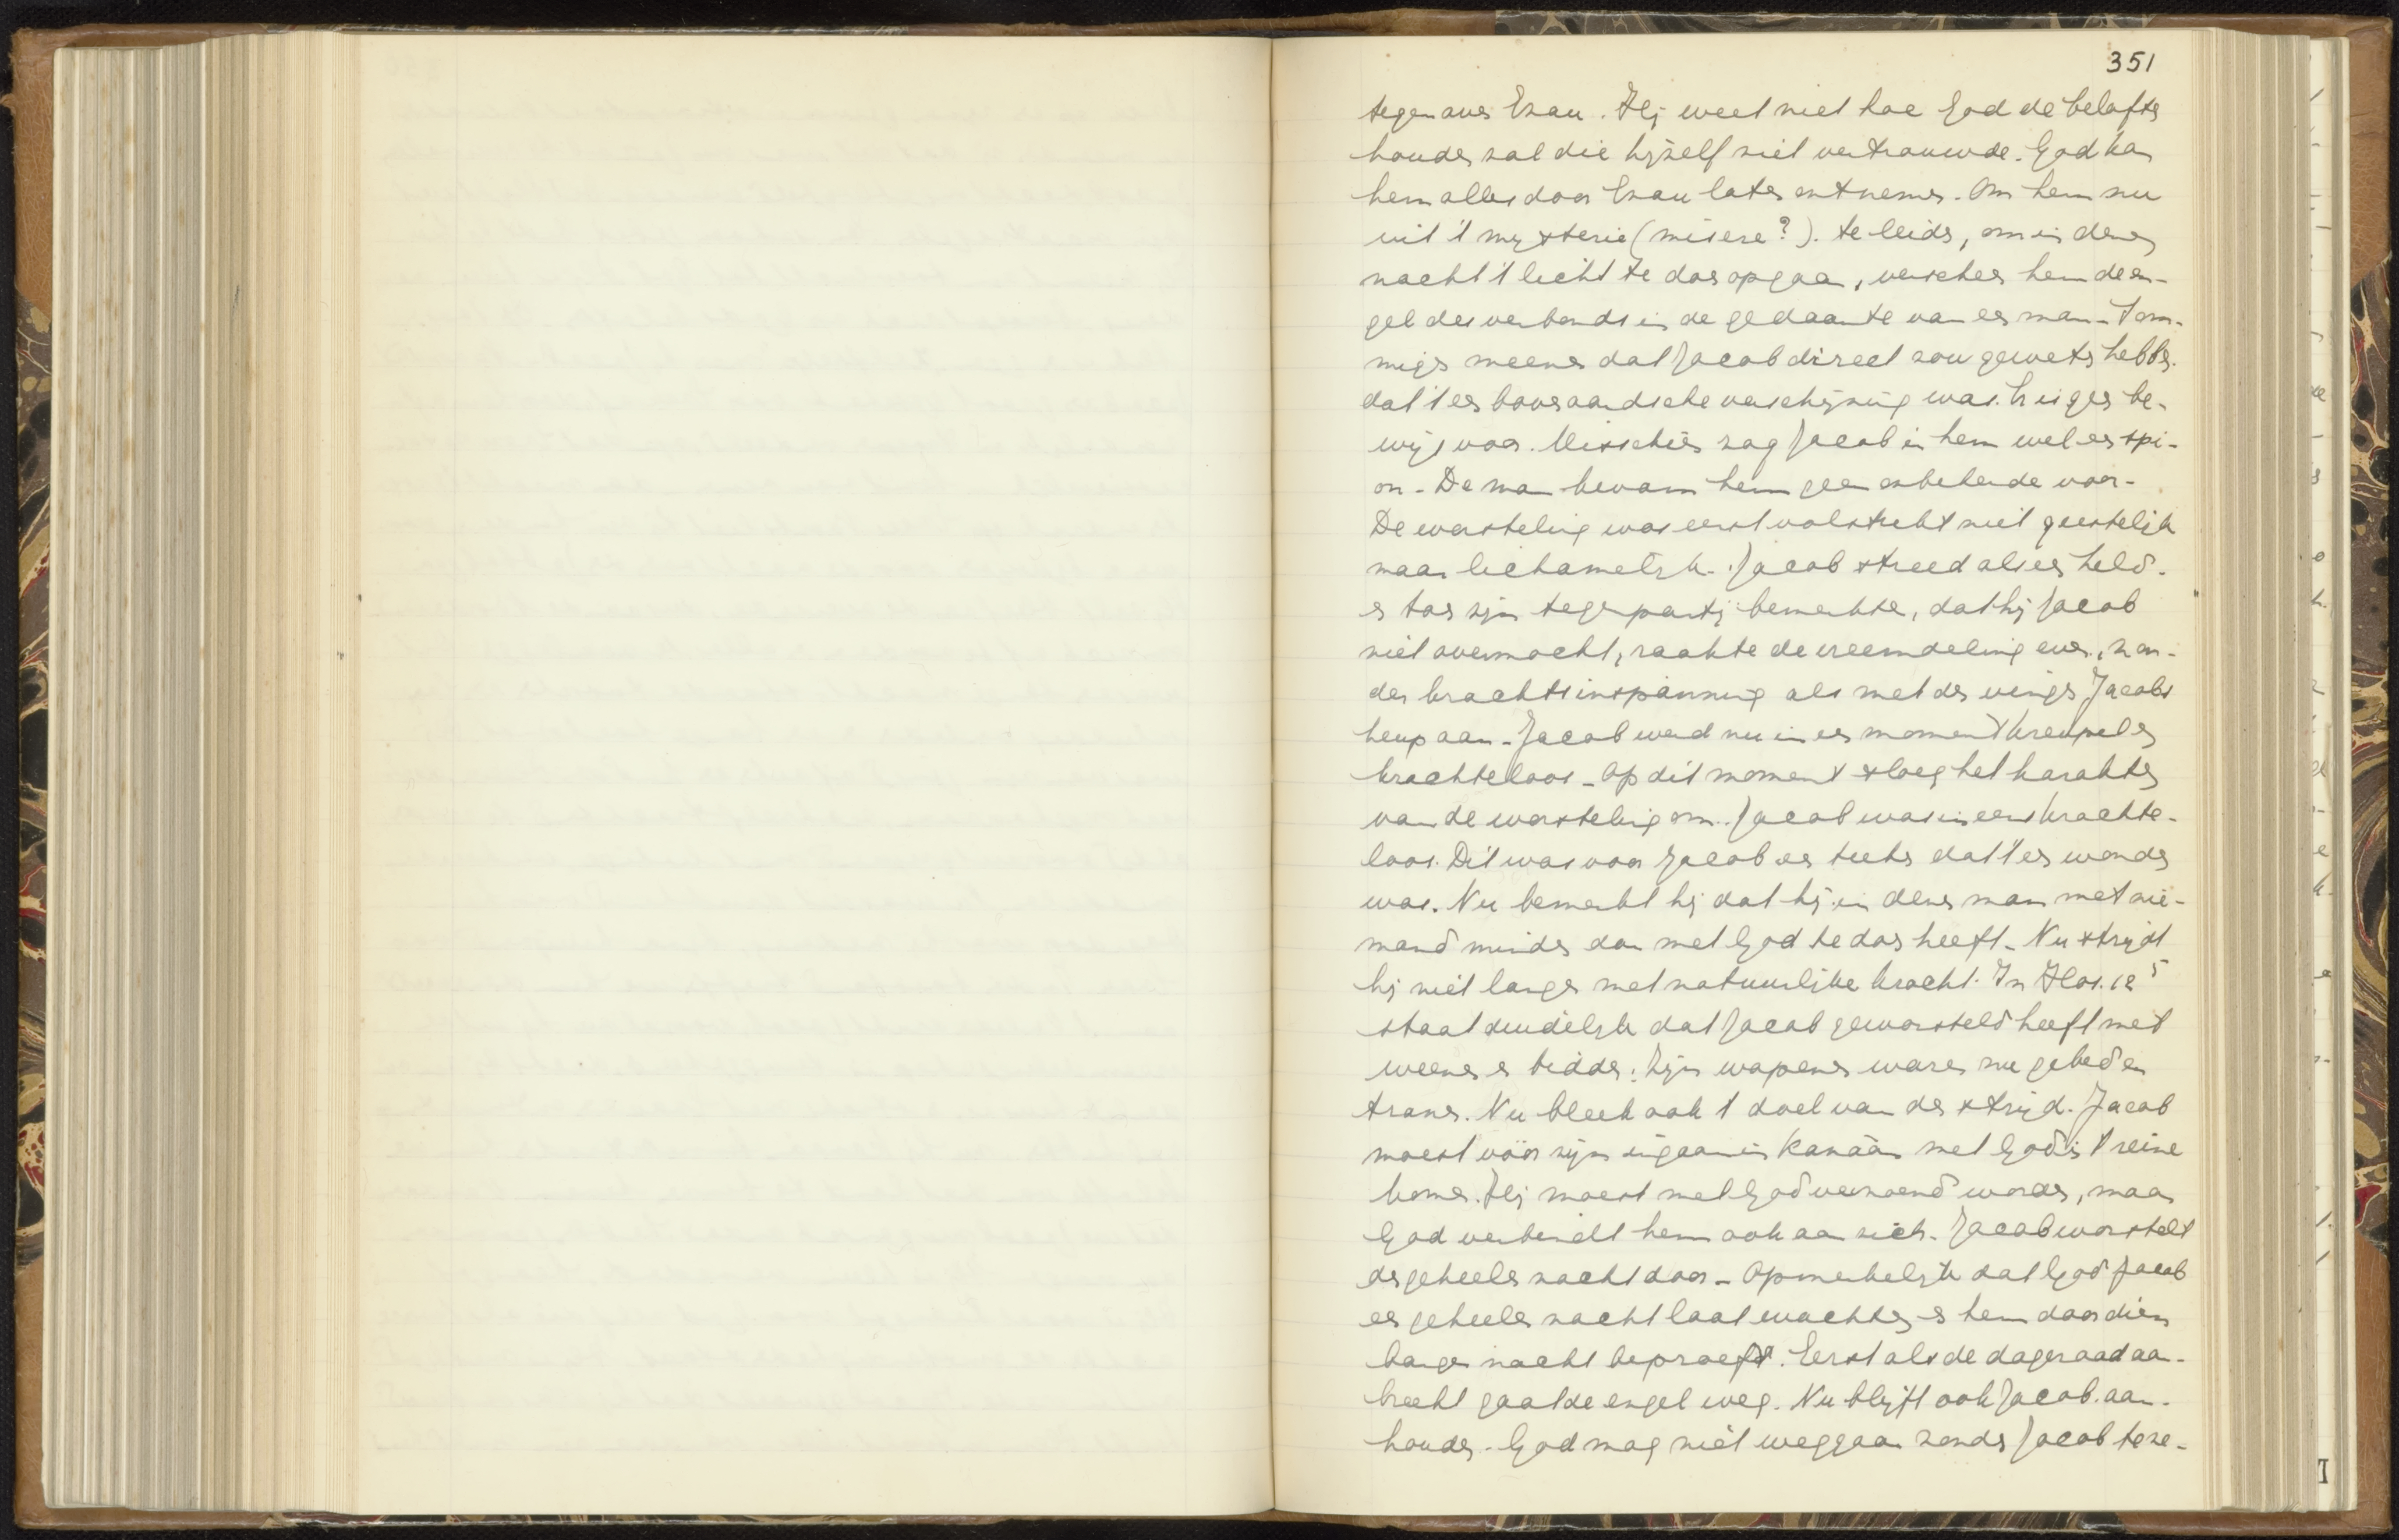 351
tegenover Ezau. Hij weet niet hoe God de belofte
houden zal die hijzelf niet vertrouwde. God kan
hem alles door Ezau laten ontnemen. Om hem nu
uit 't mysterie (misere?). te leiden, om in dezen
nacht 't licht te doen opgaan, verscheen hem de en-
gel des verbonds in de gedaante van een man. Som-
migen meenen dat Jacob direct zou geweten hebben.
dat 't een bovenaardsche verschijning was. Er is geen be-
wijs voor. Misschien zag Jacob in hem wel een spi-
on. De man kwam hem geen onbekende voor.
De worsteling was eerst volstrekt niet geestelijk
maar lichamelijk. Jacob streed als een held.
en toen zijn tegenpartij bemerkte, dat hij Jacob
niet overmocht, raakte de vreemdeling even, zon-
der krachtsinspanning als met den vinger Jacobs
heup aan. Jacob werd nu in een moment kreupel en
krachteloos. Op dit moment sloeg het karakter
van de worsteling om. Jacob was ineens krachte-
loos. Dit was voor Jacob een teeken dat 't een wonder
was. Nu bemerkt hij dat hij in dezen man met nie-
mand minder dan met God te doen heeft. Nu strijdt
hij niet langer met natuurlijke kracht. In Hos. 12 5
staat duidelijk dat Jacob geworsteld heeft met
weenen en bidden: Zijn wapenen waren nu gebed en
tranen. Nu bleek ook 't doel van den strijd. Jacob
moest vóór zijn ingaan in Kanaän met God in 't reine
komen. Hij moest met God verzoend worden, maar
God verbindt hem ook aan zich. Jacob worstelt
den geheelen nacht door. Opmerkelijk dat God Jacob
een geheelen nacht laat wachten en hem door dien
bangen nacht beproeft. Eerst als de dageraad aan-
breekt gaat de engel weg. Nu blijft ook Jacob aan-
houden. God mag niet weggaan zonder Jacob te ze-